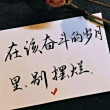 在该奋斗的岁月
里,别摆烂.